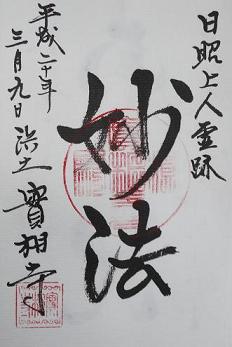 日昭上人霊跡
妙法
平成二十年
三月九日 浜土 實相寺